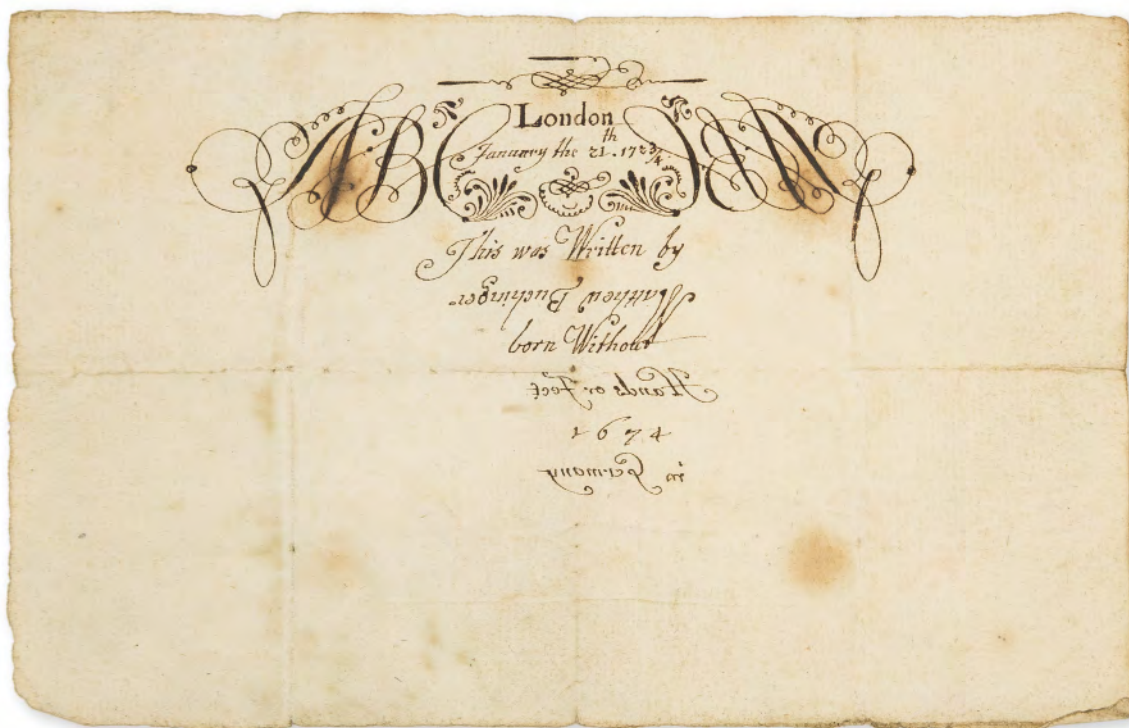 ABC
London
January the 21th. 1723/4
This was Written by
Matthew Buchinger
born Without
Hands or Feet
1674
in Germany